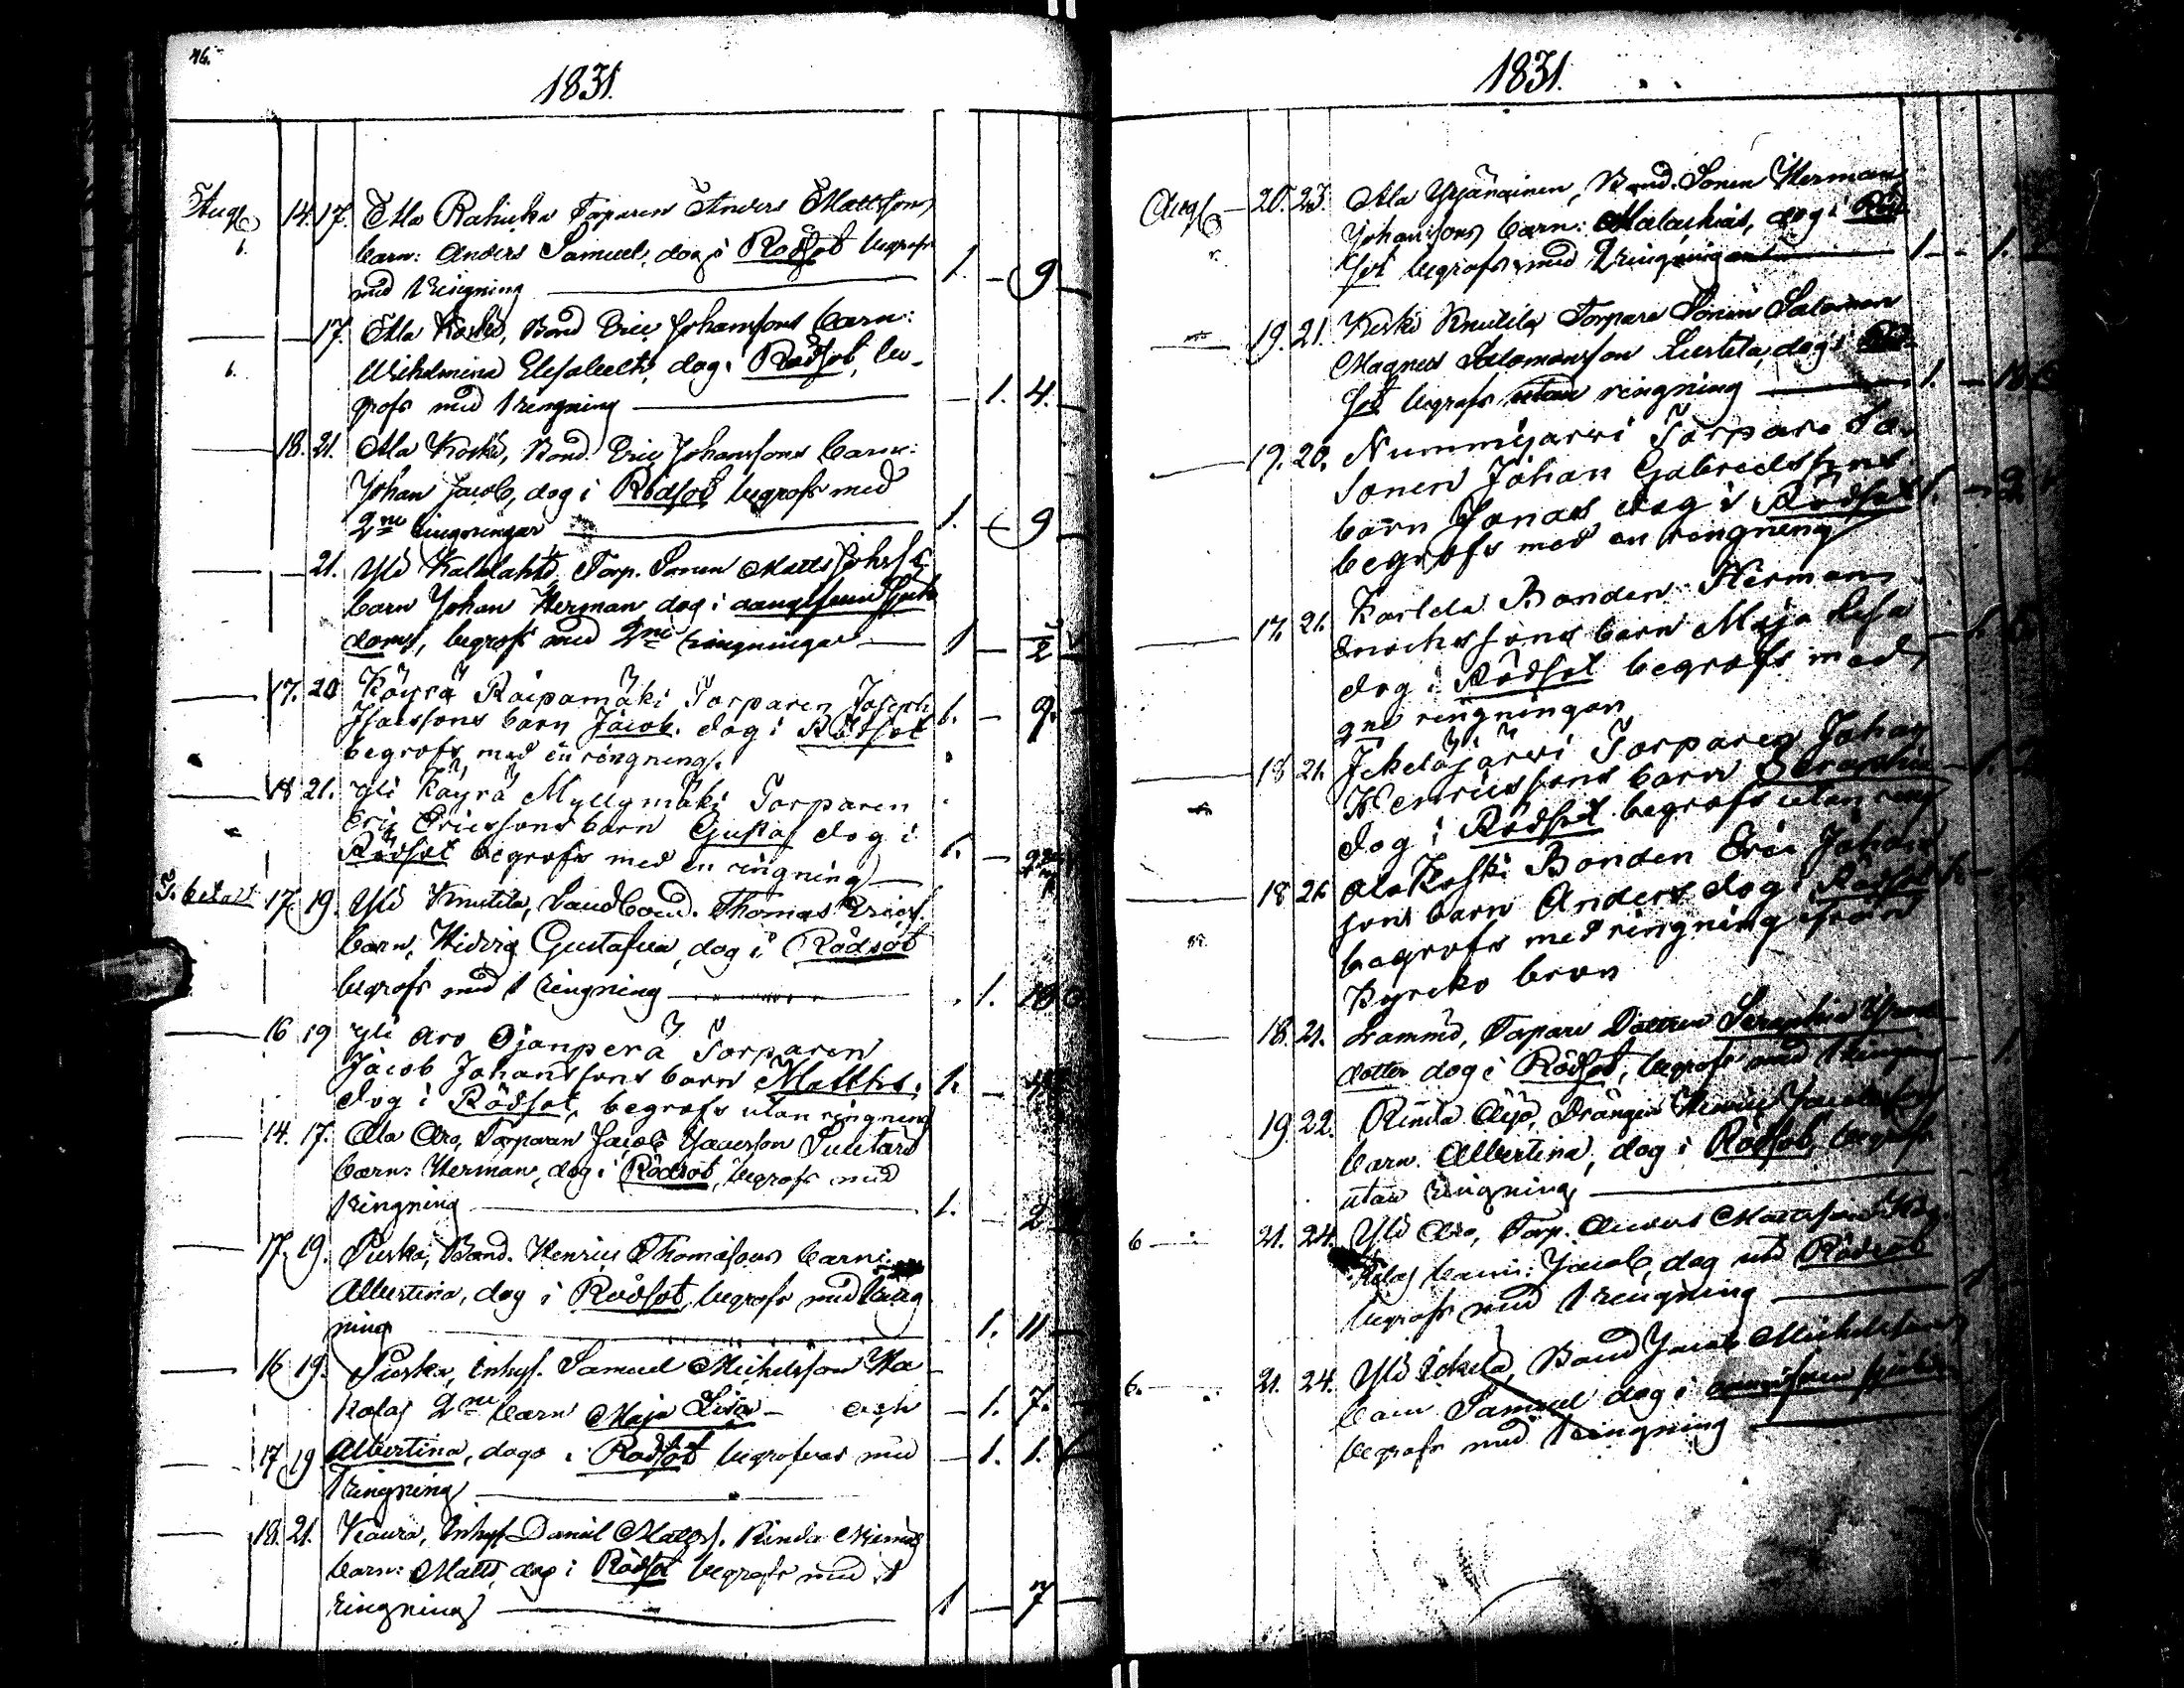 46.
1831.
Aug 14. 17. Ala Rahuka Torparen Anders Mattssons
barn: Anders Samuel, dog i Rödsot begrofs
med 1 ringning 1. 9
17. Ala Koski, Bond. Eric Johanssons barn:
Wilhelmina Elisabeth, dog i Rödsot, be-
grofs med 1 ringning 1. 4.
18. 21. Ala Koski, Bond. Eric Johanssons barn:
Johan Jacob, dog i Rödsot begrofs med
2ne ringningar 1. 9
21. Yli Kallalahti Torp. Sonen Matts Johss
barn Johan Herman dog i
doms, begrofs med 2ne ringningar 1
17. 20 Köyrä Raipamäki Torparen Joseph
Isacssons barn Jacob. dog i Rödsot 1. 9.
begrofs med en ringning.
18 21. Yli Käyrä Myllymäki Torparen
Eric Ericssons barn Gustaf dog i
Rödsot begrofs med en ringning 1.
betalt 17 19. Yli Knutila, Landbond. Thomas Ericss.
barn, Hedvig Gustafva, dog i Rödsot
begrofs med 1 ringning 1. 10
16 19 Yli Aro Ojanperä Torparen
Jacob Johanssons barn Matths. 1.
dog i Rödsot, begrofs utan ringning
14. 17. Ala Aro, Torparen Jacob Isacsson
barn: Herman, dog i Rödsot, begrofs med
1 ringning 1. 2
17. 19. Puska, Bond. Henric Thomasons barn:
Albertina, dog i Rödsot, begrofs med 1 ring
ning 1. 11
16 19. Puska, Inhys. Samuel Michelsson Ha
kalas 2ne barn Maja Lisa och 1. 7.
17 19 Albertina, dogo i Rödsot begrofvas med 1. 1.
1 ringning
18. 21. Kaura, Inhys. Daniel Matss. Rinda
barn: Matts dog i Rödsot begrofs med 1
ringning 1 7
1831.
Aug 20. 23. Ala Yrjänainen, Bond. Sonen Herman
Johanssons barn: Malachias, dog i Röd
sot begrofs med 1 ringning 1 1.
19. 21. Koski Knutila Torpare Sonen Salomon
Magnus Salomonsson dog i Röd-
sot begrofs utan ringning 1.
19. 20. Nummijärvi Torpare So-
Sonen Johan Gabrielssons
barn Jonas dog i Rödsot 1. 2
begrofs med en ringning
17. 21. Karlela Bonden Herman
Erichssons barn Maja Lisa
dog i Rödsot begrofs med
2ne ringningar
18 21. Ikeläjärvi Torparen Johan
Henricssons barn Seraphia 1.
dog i Rödsot begrofs utan ring
18 21. Ala Koski Bonden Eric Johans
sons barn Anders dog i Rödsot
begrofs med ringning från
Kyrko
18. 21. Lammi, Torpare Dottren Seraphia
dotter dog i Rödsot, begrofs med 1 ringning 1.
19 22. Rinda Aijö, Drängen Henric Jacobsson
barn. Albertina, dog i Rödsot, begrofs
utan ringning
6 21. 24. Yli Aro, Torp. Anders Mattsson
barn: Jacob, dog uti Rödsot
begrofs med 1 ringning 1
6. 21. 24. Yli Ickelä, Bond Jacob Michelssons
barn Samuel dog i
begrofs med 1 ringning